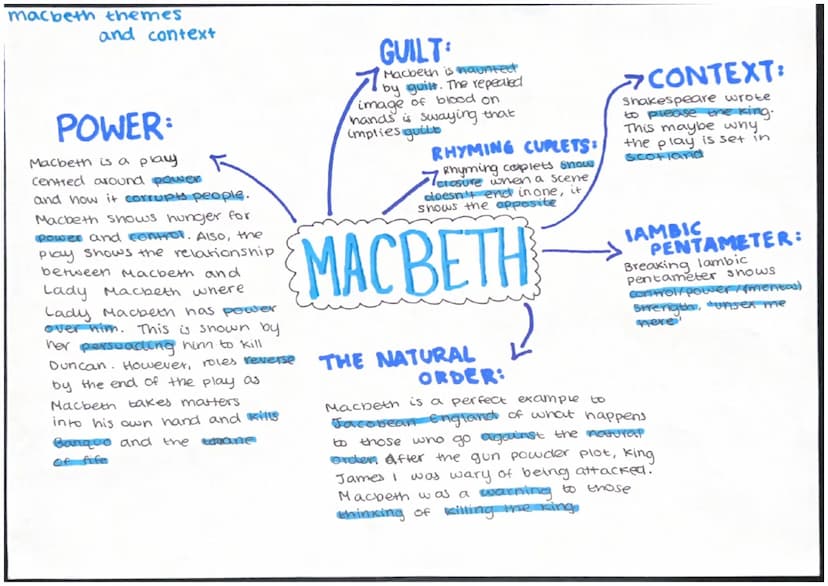 macbeth themes
and context
GUILT:
Macbeth is haunted
by guilt. The repeated
image of blood on
hands is swaying that
implies guilt
CONTEXT:
Shakespeare wrote
to please the king.
This maybe why
the play is set in
Scotland
POWER:
Macbeth is a play
centred around power
and how it corrupts people.
Macbeth shows hunger for
power and control. Also, the
play shows the relationship
between Macbeth and
Lady Macbeth where
Lady Macbeth has power
over him. This is shown by
her persuading him to kill
Duncan. However, roles reverse
by the end of the play as
Macbeth takes matters
into his own hand and kills
Banquo and the thane
of fife
RHYMING CUPLETS:
Rhyming couplets show
closure when a scene
doesn't end in one, it
shows the opposite
MACBETH
IAMBIC
PENTAMETER:
Breaking Iambic
pentameter shows
control/power/(mental)
strength. "unsex me
here"
THE NATURAL
ORDER:
Macbeth is a perfect example to
Jacobean England of what happens
to those who go against the natural
order. After the gun powder plot, King
James I was wary of being attacked.
Macbeth was a warning to those
thinking of killing the king